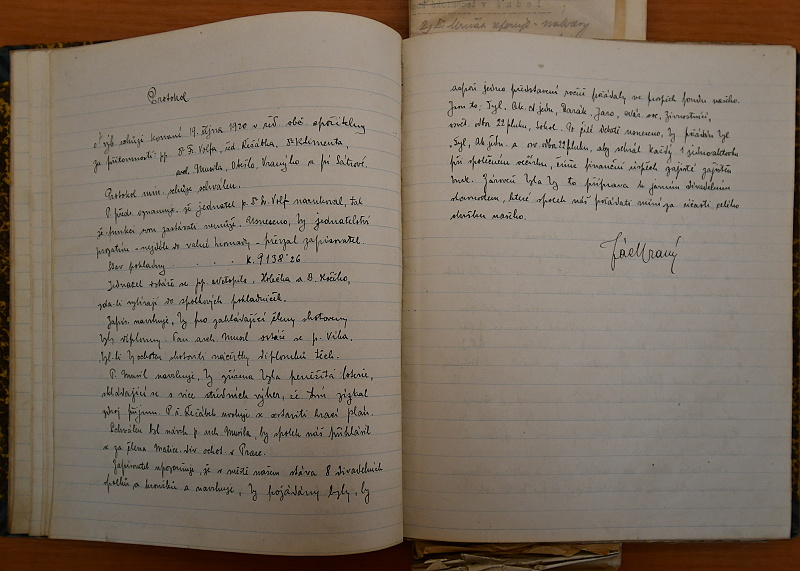 Protokol
z výb. schůze konané 19. října 1920 v říd. obč. spořitelny
za přítomnosti: pp. Dr. Fr. Volfa, řed. Řečátka, Dr. Klimenta,
arch. Musila, Vraného a pí Šátrové.
Protokol min. schůze schválen.
P. předs. oznamuje, že jednatel p. Dr. Volf naříkoval, tak
že funkci svou zastávati nemůže. Usneseno, by jednatelství
prozatím - nejdéle do valné hromady - převzal zapisovatel.
Stav pokladny . . . K. 9138·26
Jednatel otáže se pp. Světopila, Holečka a B. Kočího,
zda-li vybírají do spolkových pokladniček.
Zapis. navrhuje, by pro zakládající členy zhotoveny
byly diplomy. Pan arch. Musil otáže se p. Vika,
byl-li by ochoten zhotoviti náčrtky diplomů těch.
P. Musil navrhuje, by zřízena byla peněžitá loterie,
skládající se z více středních výher, že tím získal
zdroj příjmu. P. ř. Řečátek uvoluje se sestaviti hrací plán.
Schválen byl návrh p. arch. Musila, by spolek náš přihlásil
se za člena Matice div. ochot. v Praze.
Zapisovatel upozorňuje, že v městě našem stává 8 divadelních
spolků a kroužků a navrhuje, by požádány byly, by
aspoň jedno představení ročně pořádaly ve prospěch fondu našeho.
Jsou to: Tyl, Ak. čt. jedn., Barák, Jaro, živnostníci,
osvět. odbor 22 pluku, Sokol. Po delší debatě usneseno, by požádán byl
Tyl, Ak. jedn. a osv. odbor 22. pluku, aby sehrál každý 1 jednoaktovku
při společném večírku, čímž finanční úspěch zajisté zajištěn
bude. Zároveň byla by to příprava k jarním divadelním
slavnostem, které spolek náš pořádati míní za účasti celého
okrsku našeho.
Fáchraný